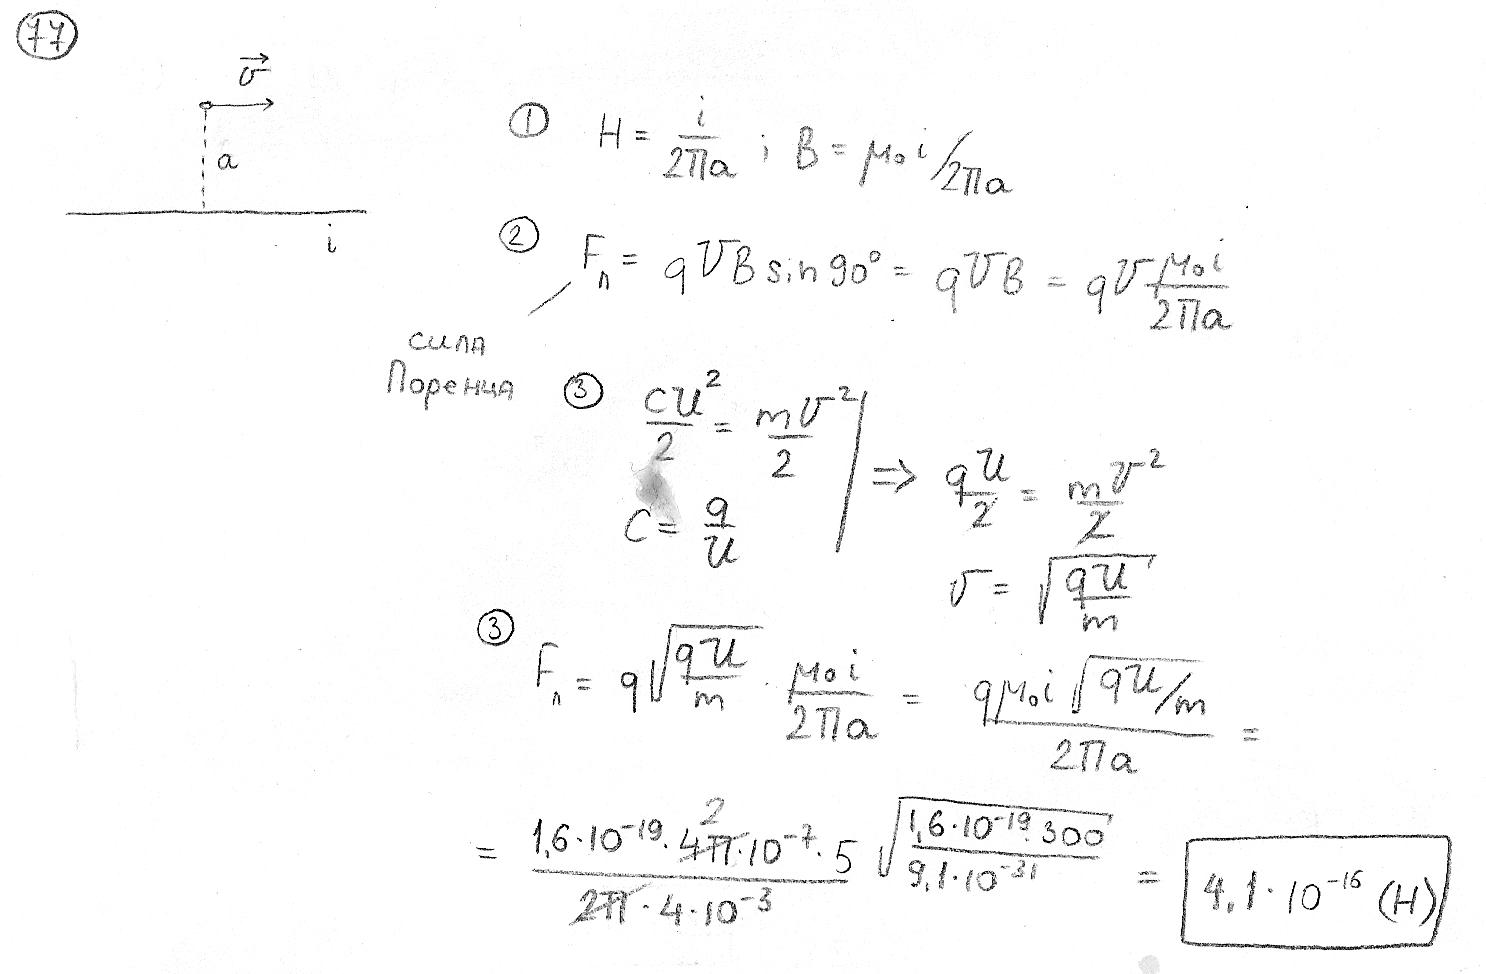 77
v⃗
a
i
① H = i/2πa ; B = μ₀i/2πa
② Fл = qυB sin 90° = qυB = qυ μ₀i/2πa
сила
Лоренца
③ cu²/2 = mυ²/2 ⇒ qu/2 = mυ²/2
c = q/u
υ = √(qu/m)
③ Fл = q√(qu/m) · μ₀i/2πa = qμ₀i√(qu/m)/2πa =
= 1,6·10⁻¹⁹·4π·10⁻⁷·5/2π·4·10⁻³ √(1,6·10⁻¹⁹·300/9,1·10⁻³¹) = 4,1·10⁻¹⁶ (H)
2